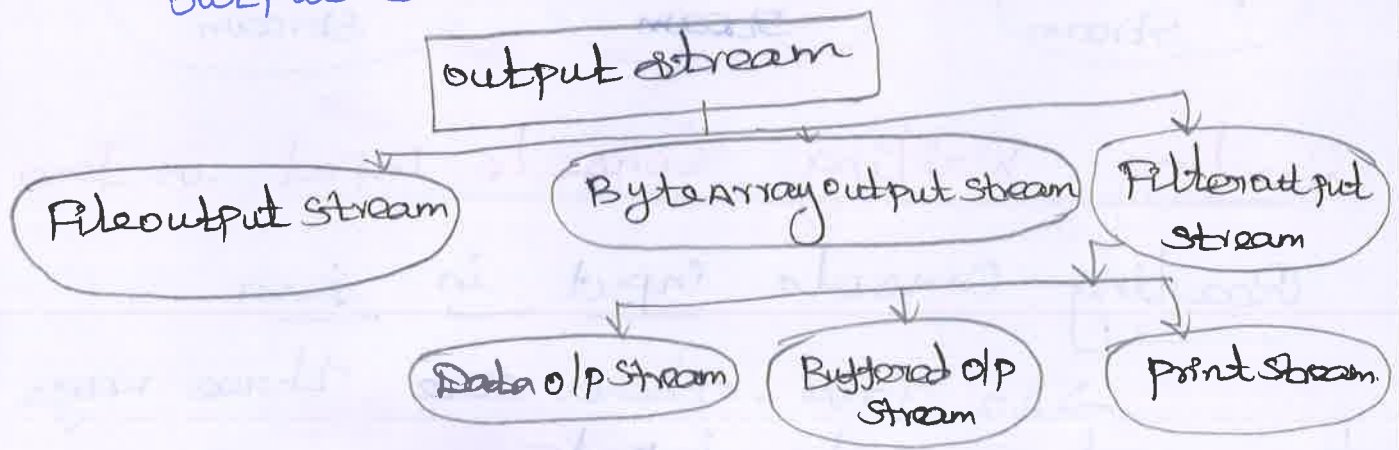 output stream
Fileoutput Stream
ByteArrayoutput Stream
Filteroutput
stream
Data o/p Stream
Buffered o/p
Stream
print Stream